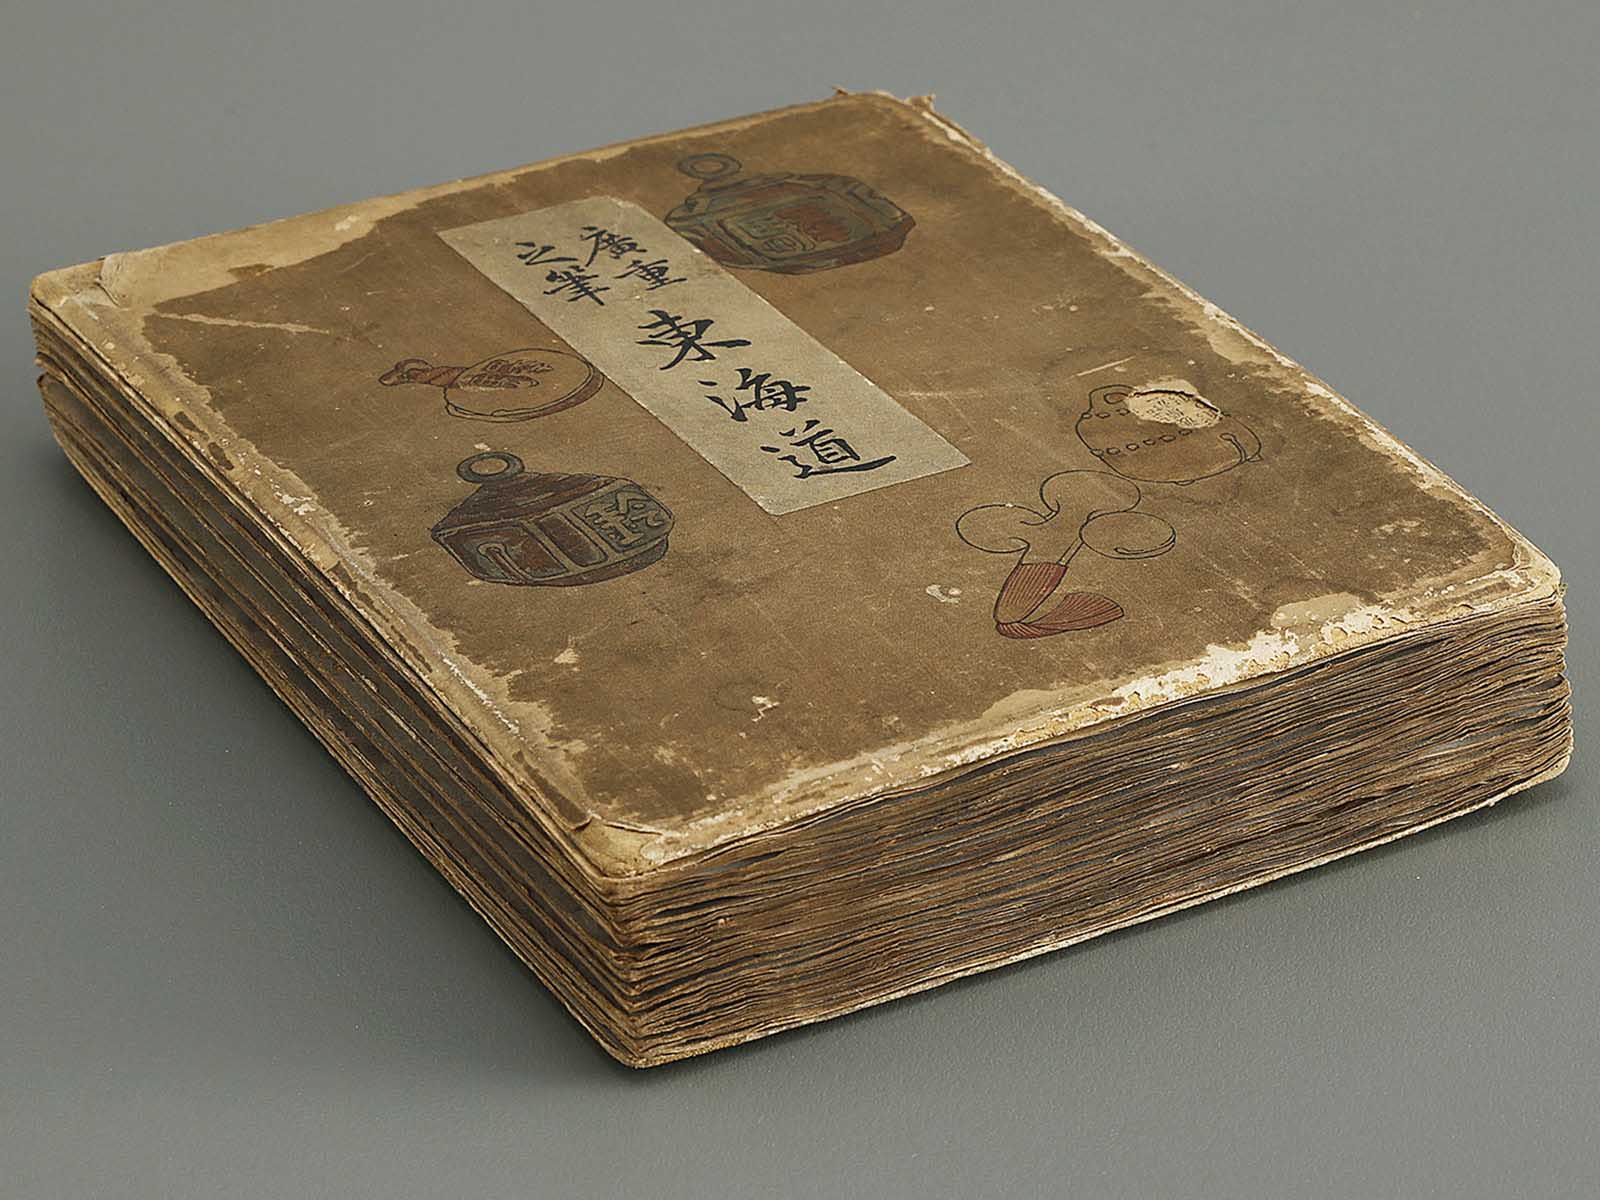 廣重
之筆
東海道